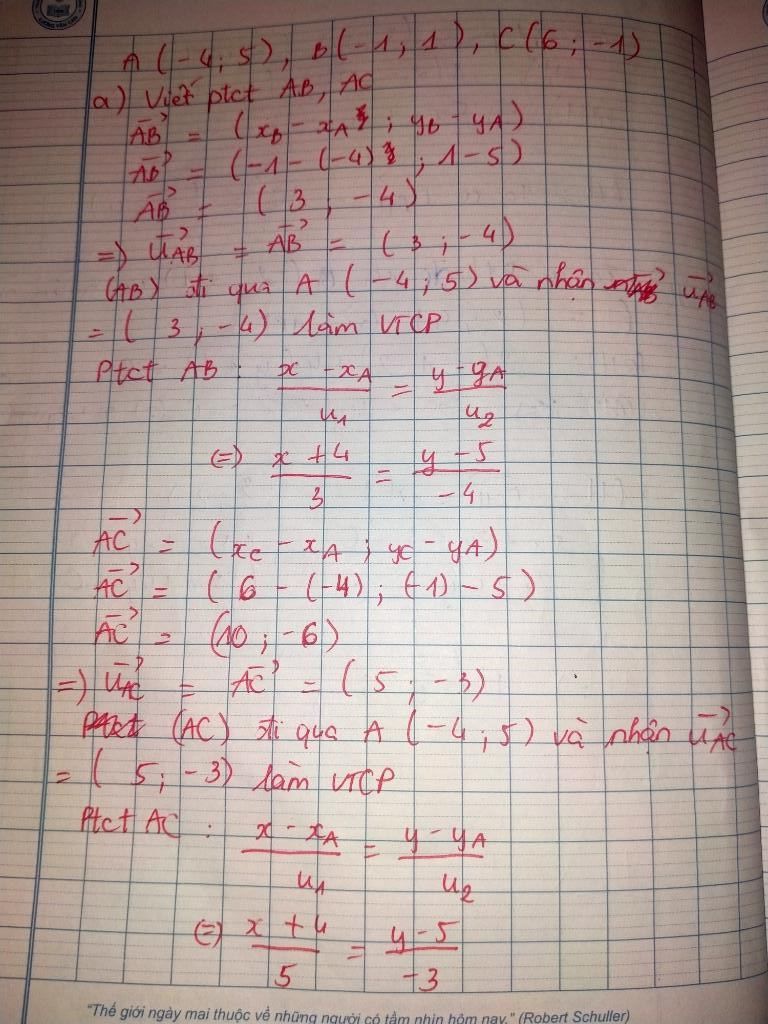 A (-4; 5), B(-1; 1), C(6; -1)
a) Viết ptct AB, AC
AB→ = (xB - xA; yB - yA)
AB→ = (-1 - (-4); 1 - 5)
AB→ = (3; -4)
=) uAB→ = AB→ = (3; -4)
(AB) đi qua A (-4; 5) và nhận uAB→
= (3; -4) làm VTCP
Ptct AB: (x - xA)/u1 = (y - yA)/u2
(=) (x + 4)/3 = (y - 5)/-4
AC→ = (xC - xA; yC - yA)
AC→ = (6 - (-4); (-1) - 5)
AC→ = (10; -6)
=) uAC→ = AC→ = (5; -3)
(AC) đi qua A (-4; 5) và nhận uAC→
= (5; -3) làm VTCP
Ptct AC: (x - xA)/u1 = (y - yA)/u2
(=) (x + 4)/5 = (y - 5)/-3
"Thế giới ngày mai thuộc về những người có tầm nhìn hôm nay." (Robert Schuller)